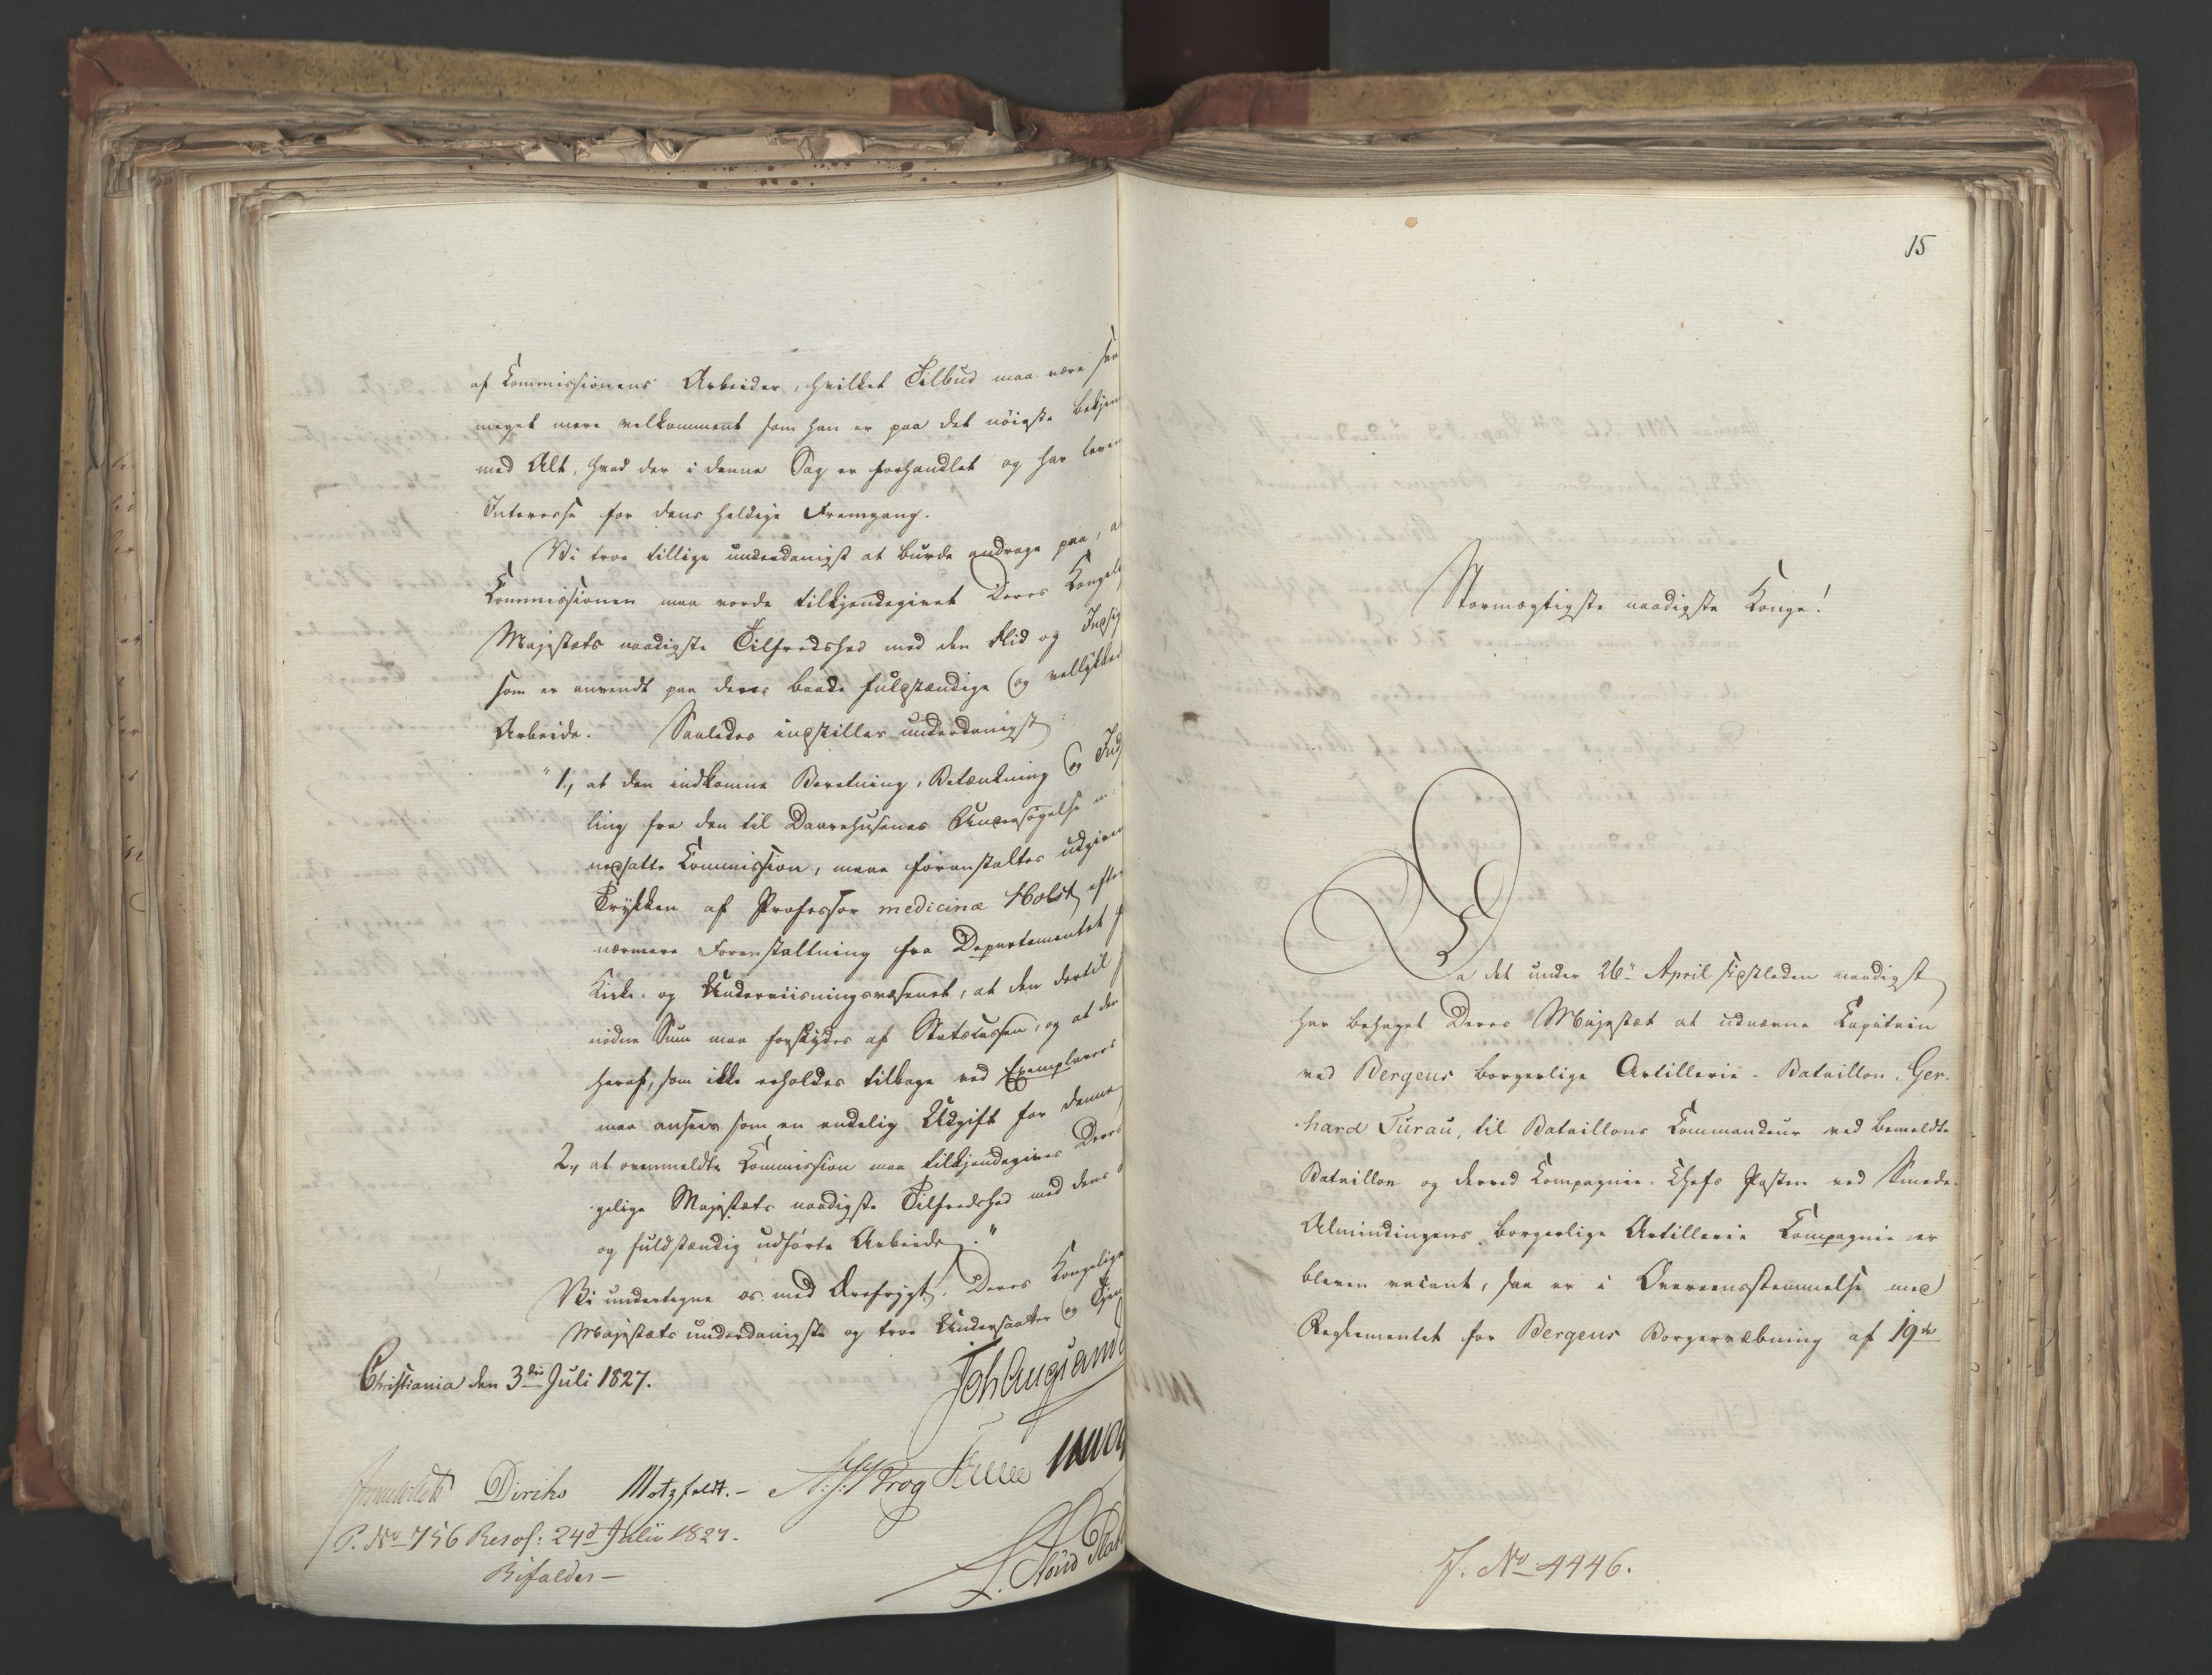 af Commissionens Arbeider, hvilket Tilbud maa være saa
meget mere velkomment som han er paa det nøieste bekjen
med Alt, hvad der i denne Sag er forhandlet og har leven
Interesse for dens heldige Fremgang.
Vi troe tillige underdanigst at burde andrage paa, a
Commissionen maa vorde tilkjendegivet Deres Kongel
Majestæts naadigste Tilfredshed med den Flid og Indsig
som er anvendt paa deres baade fuldstændige og vellykked
Arbeide. Saaledes indstilles underdanigst:
"1, at den indkomne Beretning, Betænkning og Ind
ling fra den til Daarehusenes Undersøgelse
nedsatte Commission, maae foranstaltes udgiven
Trykken af Professor medicinæ Holst, efter
nærmere Foranstaltning fra Departementet f
Kirke- og Underviisningsvæsenet, at den dertil f
nødne Sum maa forskydes af Statscassen, og at der
heraf, som ikke erholdes tilbage ved Exemplarers
maa ansees som en endelig Udgift for denne,
2, at ovenmeldte Commission maa tilkjendegives Deres
gelige Majestæts naadigste Tilfredshed med dens
og fuldstændig udførte Arbeide."
Vi undertegne os med Ærefrygt, Deres Kongelige
Majestæts underdanigste og troe Undersaatter og Tjen
Christiania den 3die Juli 1827.
Joh Aug Sand
Diriks Motzfeldt.- Krog
P. No 756 Resol: 24d Julii 1827.
Bifaldes-
15
Stormægtigste naadigste Konge!
Da det under 26de April sidstleden naadigst
har behaget Deres Majestæt at udnævne Capitain
ved Bergens borgerlige Artillerie-Bataillon, Ger-
hard Turau, til Bataillons Commandeur ved bemeldte
Bataillon og derved Compagnie-Chefs Posten ved Smeds-
Almindingens borgerlige Artillerie Compagnie er
bleven vacant, saa er i Overeensstemmelse med
Reglementet for Bergens Borgervæbning af 19de
J. No 4446.